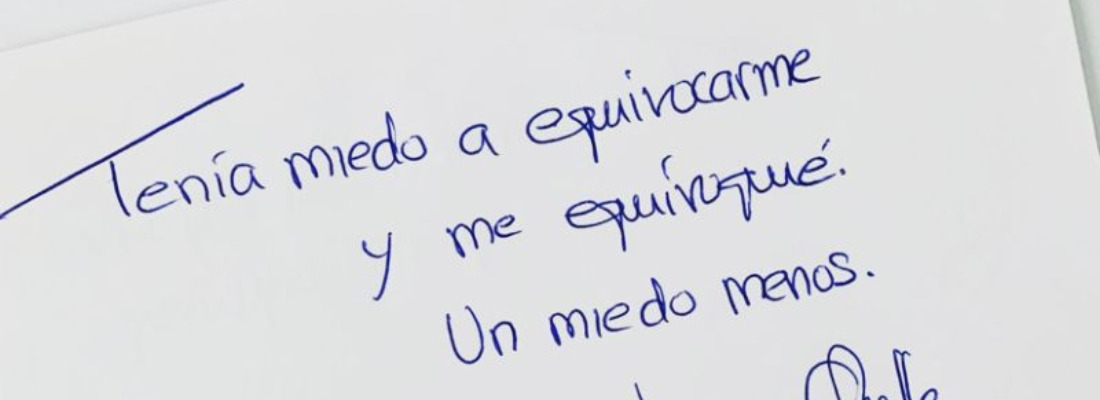 Tenía miedo a equivocarme
y me equivoqué.
Un miedo menos.